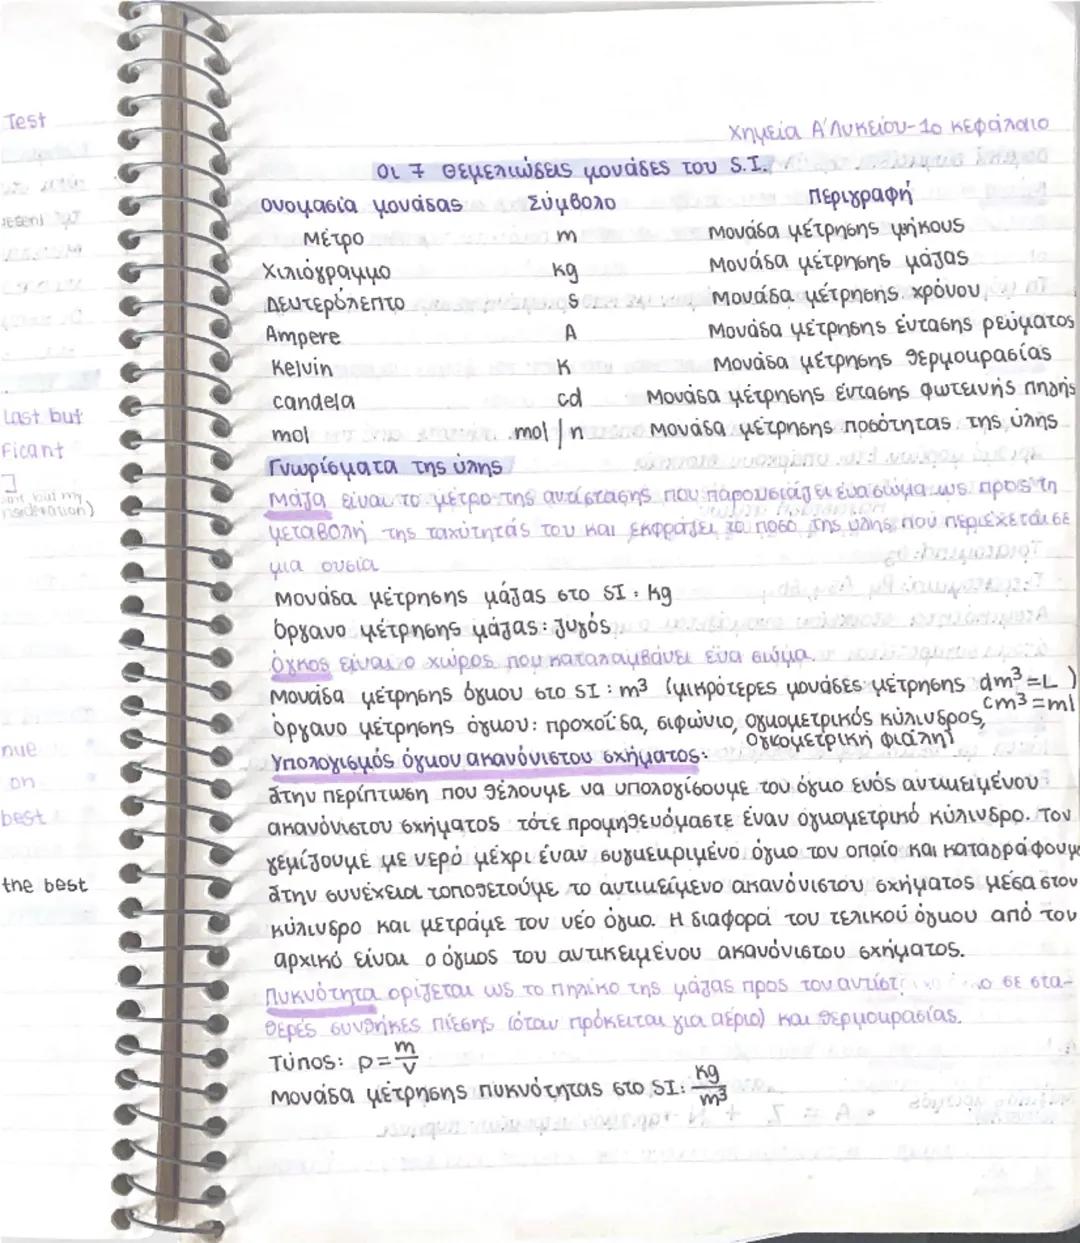 Test
Last but
ficant
nue
on
best
the best
Χημεία Α'Λυκείου-1ο Κεφάλαιο
Οι 7 θεμελιώδεις μονάδες του S.I.
Ονομασία μονάδας Σύμβολο Περιγραφή
Μέτρο m Μονάδα μέτρησης μήκους
Χιλιόγραμμο kg Μονάδα μέτρησης μάζας
Δευτερόλεπτο s Μονάδα μέτρησης χρόνου
Ampere A Μονάδα μέτρησης έντασης ρεύματος
Kelvin K Μονάδα μέτρησης θερμοκρασίας
candela cd Μονάδα μέτρησης έντασης φωτεινής πηγής
mol mol | n Μονάδα μέτρησης ποσότητας της ύλης
Γνωρίσματα της ύλης
Μάζα είναι το μέτρο της αντίστασης που παρουσιάζει ένα σώμα ως προς τη
μεταβολή της ταχύτητάς του και εκφράζει το ποσό της ύλης που περιέχεται σε
μια ουσία
Μονάδα μέτρησης μάζας στο SI: kg
Όργανο μέτρησης μάζας: ζυγός
Όγκος είναι ο χώρος που καταλαμβάνει ένα σώμα.
Μονάδα μέτρησης όγκου στο SI: m³ (μικρότερες μονάδες μέτρησης dm³=L )
cm³=ml
Όργανο μέτρησης όγκου: προχοΐδα, σιφώνιο, ογκομετρικός κύλινδρος,
ογκομετρική φιάλη
Υπολογισμός όγκου ακανόνιστου σχήματος:
Στην περίπτωση που θέλουμε να υπολογίσουμε του όγκο ενός αντικειμένου
ακανόνιστου σχήματος τότε προμηθευόμαστε έναν ογκομετρικό κύλινδρο. Τον
γεμίζουμε με νερό μέχρι έναν συγκεκριμένο όγκο τον οποίο και καταγράφουμε
Στην συνέχεια τοποθετούμε το αντικείμενο ακανόνιστου σχήματος μέσα στον
κύλινδρο και μετράμε τον νέο όγκο. Η διαφορά του τελικού όγκου από τον
αρχικό είναι ο όγκος του αντικειμένου ακανόνιστου σχήματος.
Πυκνότητα ορίζεται ως το πηλίκο της μάζας προς τον σε στα-
θερές συνθήκες πίεσης (όταν πρόκειται για αέριο) και θερμοκρασίας.
Τύπος: ρ=m/V
Μονάδα μέτρησης πυκνότητας στο SI: kg/m³